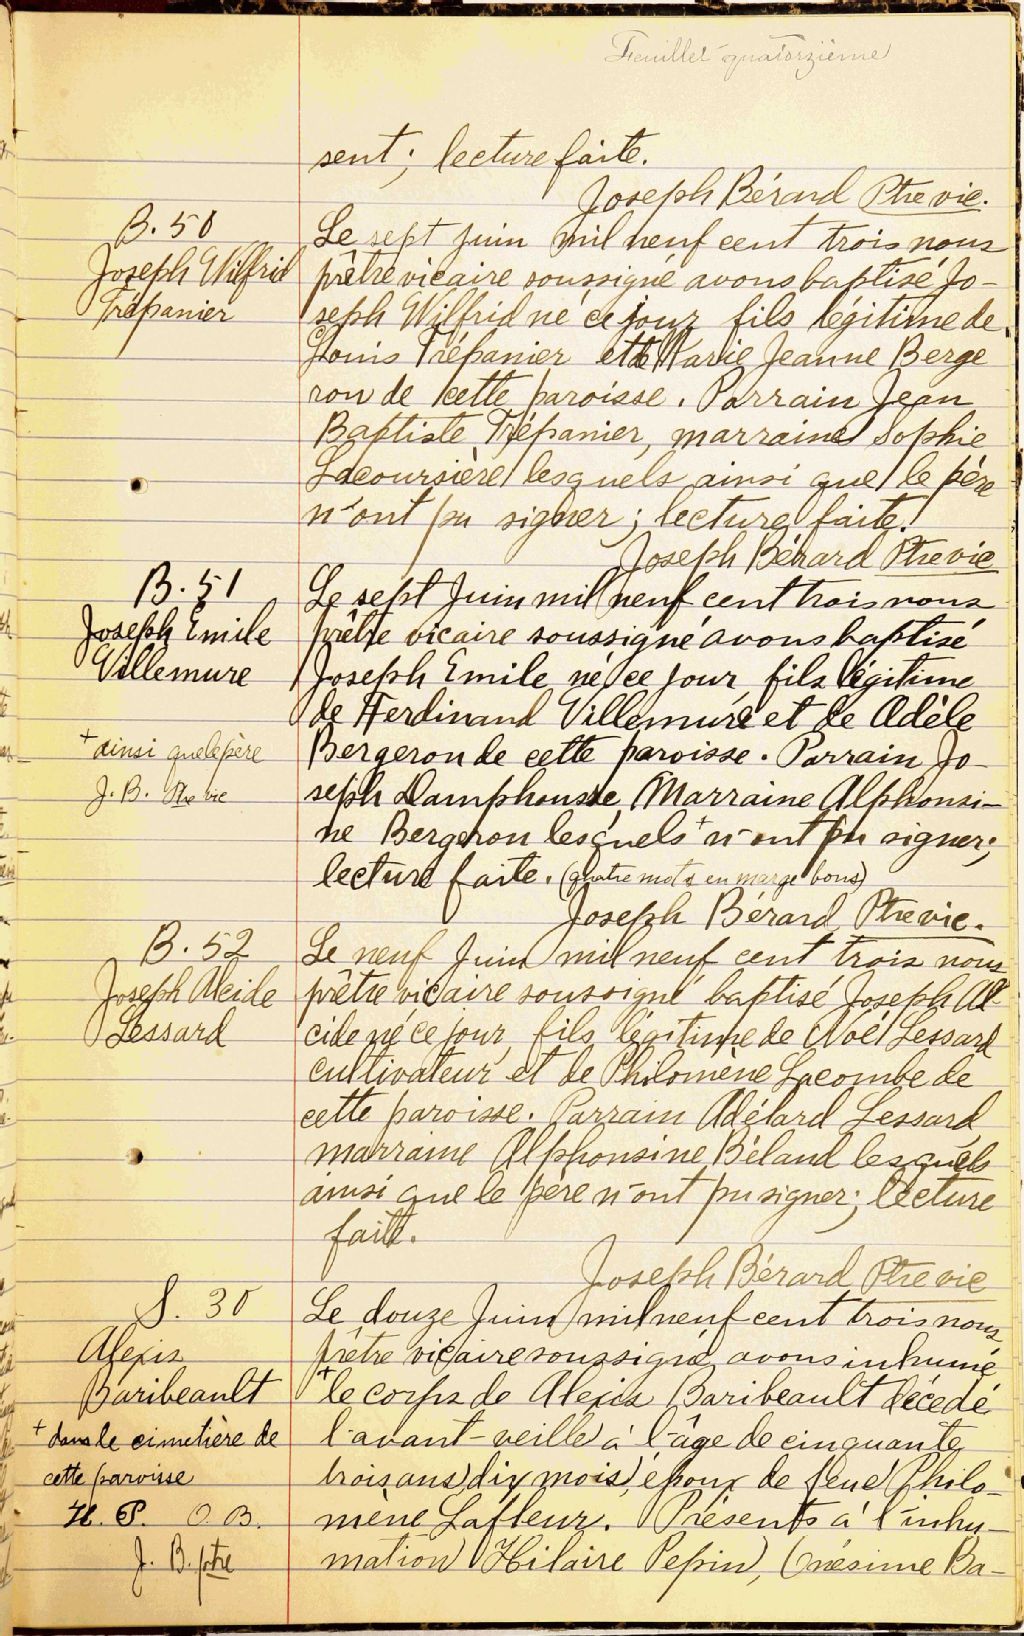 Feuillet quatorzième
sent; lecture faite.
Joseph Bérard Ptre vic.
B. 50
Joseph Wilfrid
Trépanier
Le sept juin mil neuf cent trois nous
prêtre vicaire soussigné avons baptisé Jo-
seph Wilfrid né ce jour fils légitime de
Louis Trépanier et de Marie Jeanne Berge
ron de cette paroisse. Parrain Jean
Baptiste Trépanier, marraine Sophie
Lacoursière lesquels ainsi que le père
n'ont pu signer; lecture faite.
Joseph Bérard Ptre vic
B. 51
Joseph Emile
Villemure
+ ainsi que le père
J. B. Ptre vic
Le sept Juin mil neuf cent trois nous
prêtre vicaire soussigné avons baptisé
Joseph Emile né ce jour fils légitime
de Ferdinand Villemure et de Adèle
Bergeron de cette paroisse. Parrain Jo-
seph Damphousse, Marraine Alphonsi-
ne Bergeron lesquels + n'ont pu signer;
lecture faite. (quatre mots en marge bons)
Joseph Bérard Ptre vic.
B. 52
Joseph Alcide
Lessard
Le neuf Juin mil neuf cent trois nous
prêtre vicaire soussigné baptisé Joseph Al-
cide né ce jour, fils légitime de Noël Lessard
cultivateur et de Philomène Lacombe de
cette paroisse. Parrain Adélard Lessard
marraine Alphonsine Béland lesquels
ainsi que le père n'ont pu signer; lecture
faite.
Joseph Bérard Ptre vic
S. 30
Alexis
Baribeault
+ dans le cimetière de
cette paroisse
H. P. O. B.
J. B. ptre
Le douze Juin mil neuf cent trois nous
prêtre vicaire soussigné, avons inhumé
+ le corps de Alexis Baribeault décédé
l'avant-veille à l'âge de cinquante
trois ans dix mois, époux de feue Philo-
mène Lafleur. Présents à l'inhu-
mation Hilaire Pepin, Onésime Ba-